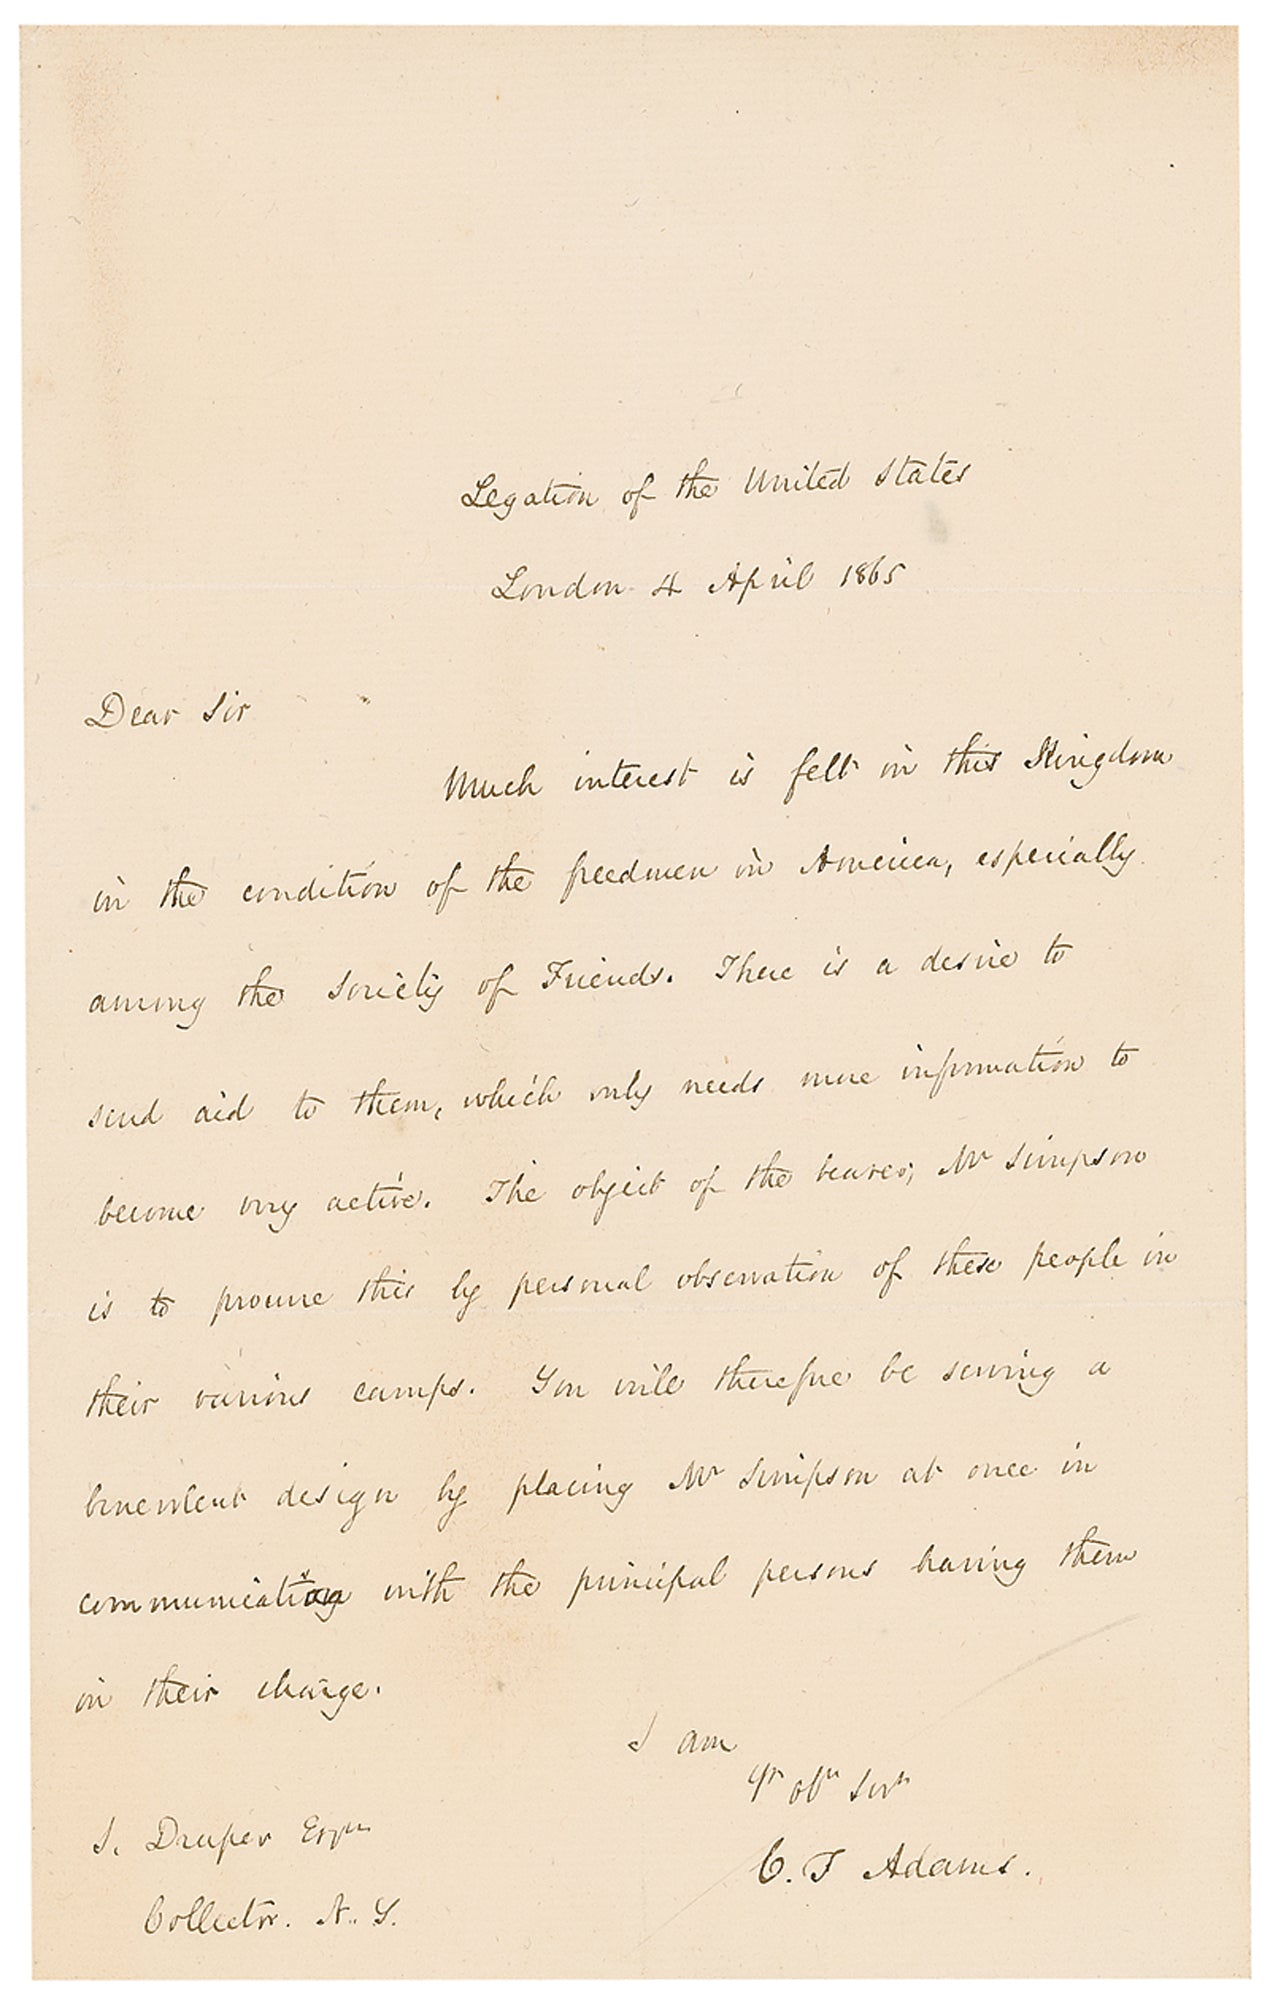 Legation of the United States
London 4 April 1865
Dear Sir
Much interest is felt in this Kingdom
in the condition of the freedmen in America, especially
among the Society of Friends. There is a desire to
send aid to them, which only needs more information to
become very active. The object of the bearer, Mr Simpson
is to procure this by personal observation of these people in
their various camps. You will therefore be serving a
benevolent design by placing Mr Simpson at once in
communication with the principal persons having them
in their charge.
I am
yr obt Servt
C. F Adams.
S. Draper Esqre
Collector. N. Y.